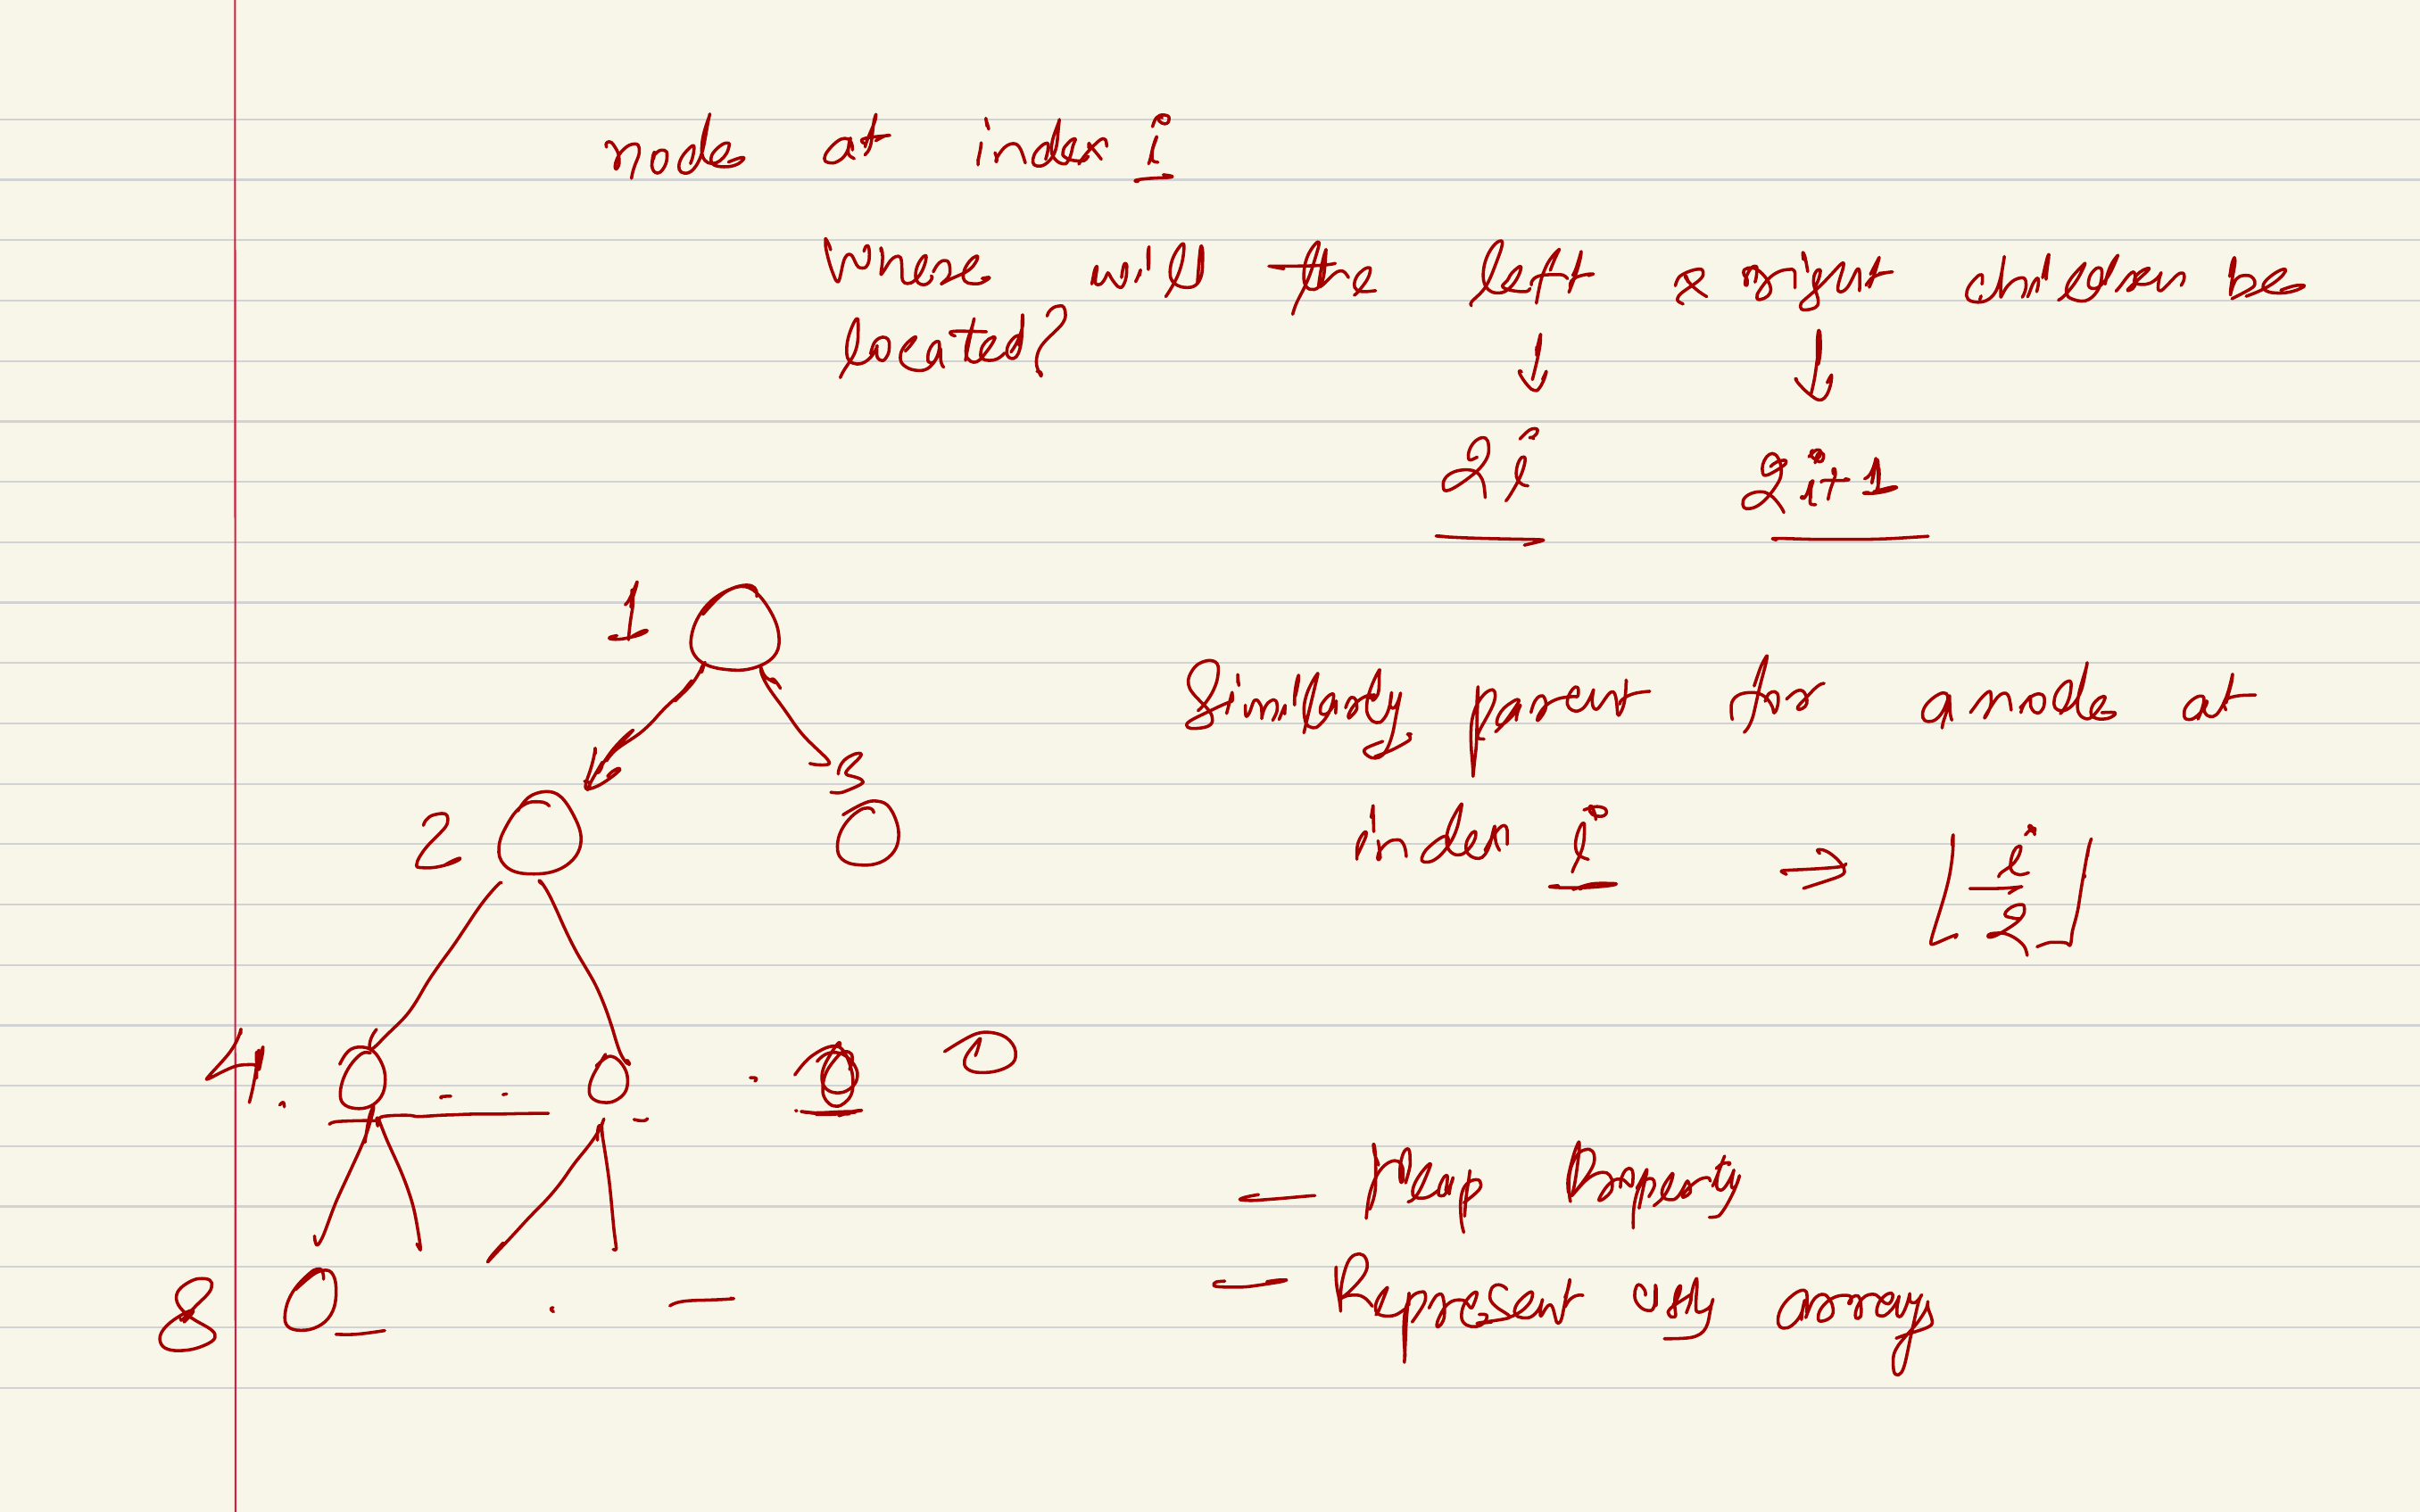 node at index i
Where will the left & right children be
located?
2i 2i+1
1
Similarly parent for a node at
3
2
index i ⇒ ⌊i/2⌋
4.
- Heap Property
- Represent using array
8